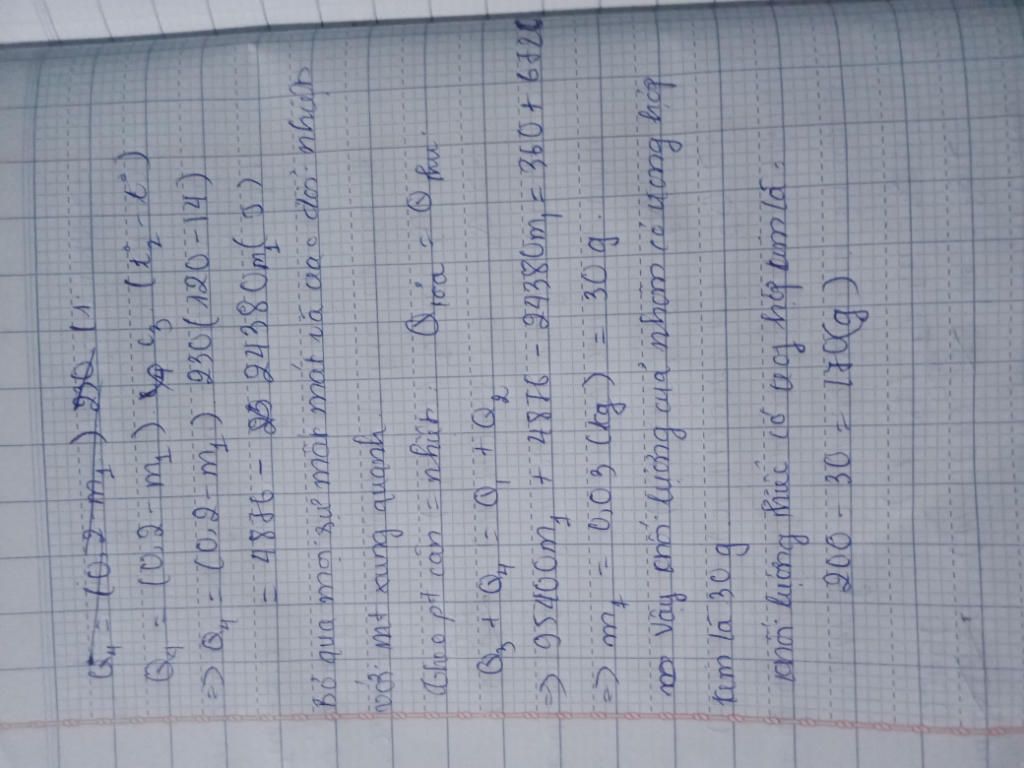 Q₄ = (0,2 - m₁) 230 (1
Q₄ = (0,2 - m₁) c₃ (t°₂ - t°)
=> Q₄ = (0,2 - m₁) 230 (120 - 14)
= 4876 - 24380m₁ (J)
Bỏ qua mọi sự mất mát và trao đổi nhiệt
với mt xung quanh
Theo pt cân = nhiệt. Q tỏa = Q thu.
Q₃ + Q₄ = Q₁ + Q₂
=> 95400m₁ + 4876 - 24380m₁ = 360 +
=> m₁ = 0,03 (kg) = 30g.
Vậy khối lượng của nhôm có trong hợp
kim là 30g
khối lượng thiếc có trong hợp kim là:
200 - 30 = 170(g)